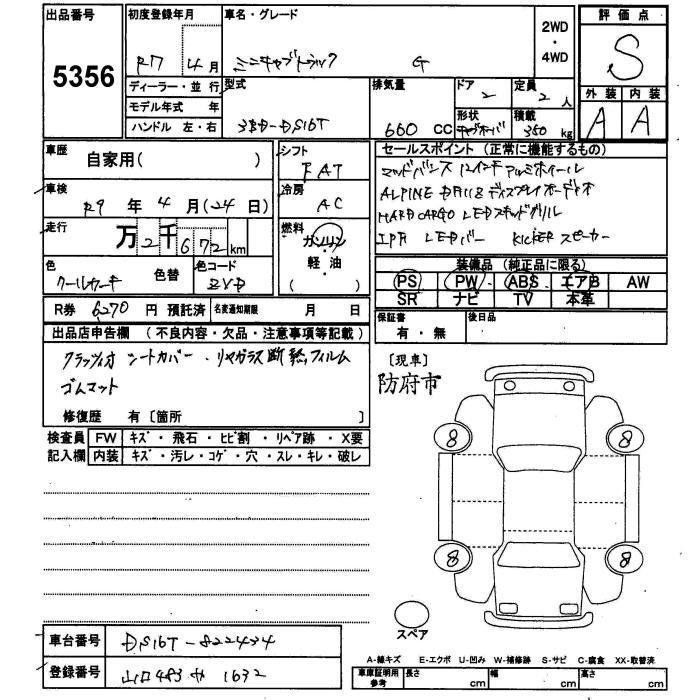 出品番号 初度登録年月 車名・グレード 2WD・4WD 評価点
5356 R7 4月 ミニキャブトラック G S
ディーラー・並行 型式 排気量 ドア 定員 外装 内装
モデル年式 年 3BD-DS16T 660 CC 2 2人 A A
ハンドル 左・右 形状 積載 350 kg
車歴 自家用( ) シフト FAT セールスポイント(正常に機能するもの)
車検 R9年 4月(24日) 冷房 AC マッドバンス 12インチアルミホイール
走行 万 2千672km 燃料 ガソリン・軽・油( ) ALPINE DA11Z ディスプレイオーディオ
HARD CARGO LEDスキッドグリル
IPF LEDバー KICKER スピーカー
色 色替 色コード 装備品(純正品に限る)
PS PW ABS エアB AW
SR ナビ TV 本革
R券 6270円 預託済 名変通知期限 月 日 保証書 有・無 後日品
出品店申告欄(不良内容・欠品・注意事項等記載)
クラッツィオ シートカバー・リヤガラス断熱フィルム
ゴムマット
修復歴 有〔箇所 〕
〔現車〕
防府市
検査員記入欄 FW キズ・飛石・ヒビ割・リペア跡・X要
内装 キズ・汚レ・コゲ・穴・スレ・キレ・破レ
8 8
8 8
スペア
車台番号 DS16T-822434
登録番号 山口483 か 1632
A-線キズ E-エクボ U-凹み W-補修跡 S-サビ C-腐食 XX-取替済
車庫証明用参考 長さ cm 幅 cm 高さ cm